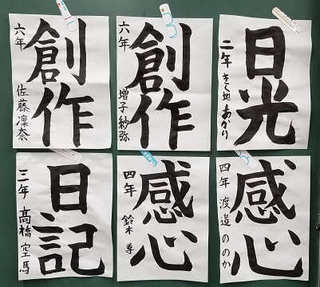 日光
二年 きくち あかり
創作
六年 増子 紗弥
創作
六年 佐藤凛奈
感心
四年 渡邉 ののか
感心
四年 鈴木 尊
日記
三年 高橋 空馬